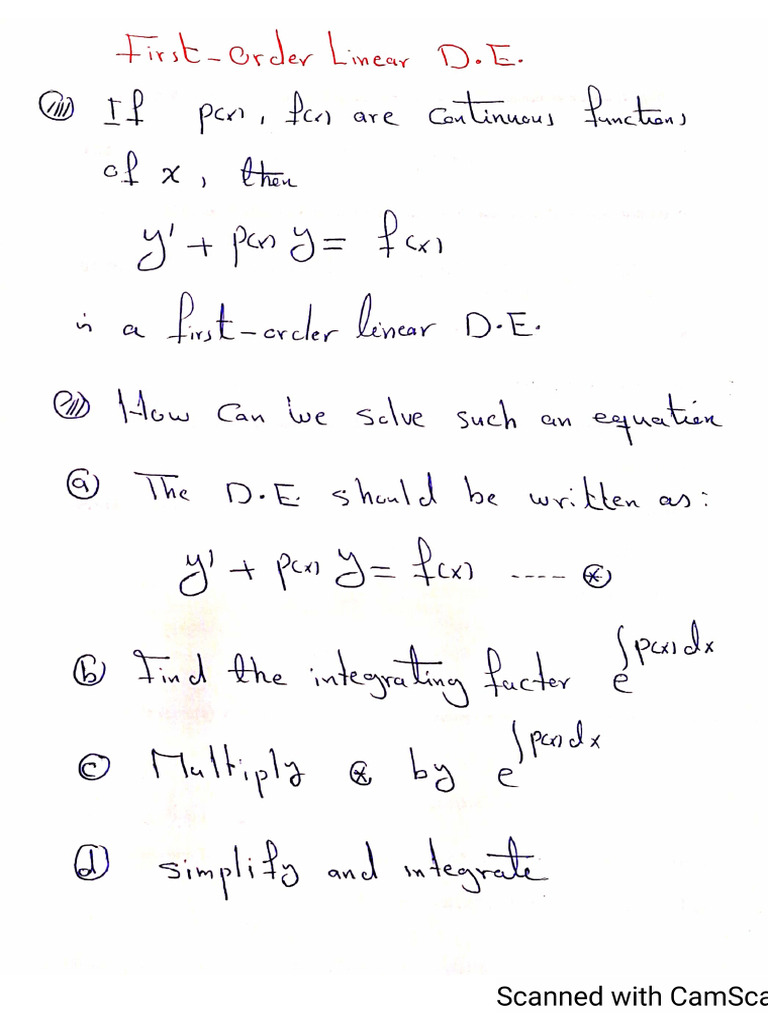 First-Order Linear D.E.
If p(x), f(x) are continuous functions
of x, then
y' + p(x) y = f(x)
is a first-order linear D.E.
How can we solve such an equation
(a) The D.E. should be written as:
y' + p(x) y = f(x) ---- ⊛
(b) Find the integrating factor e^∫p(x)dx
(c) Multiply ⊛ by e^∫p(x)dx
(d) simplify and integrate
Scanned with CamSca